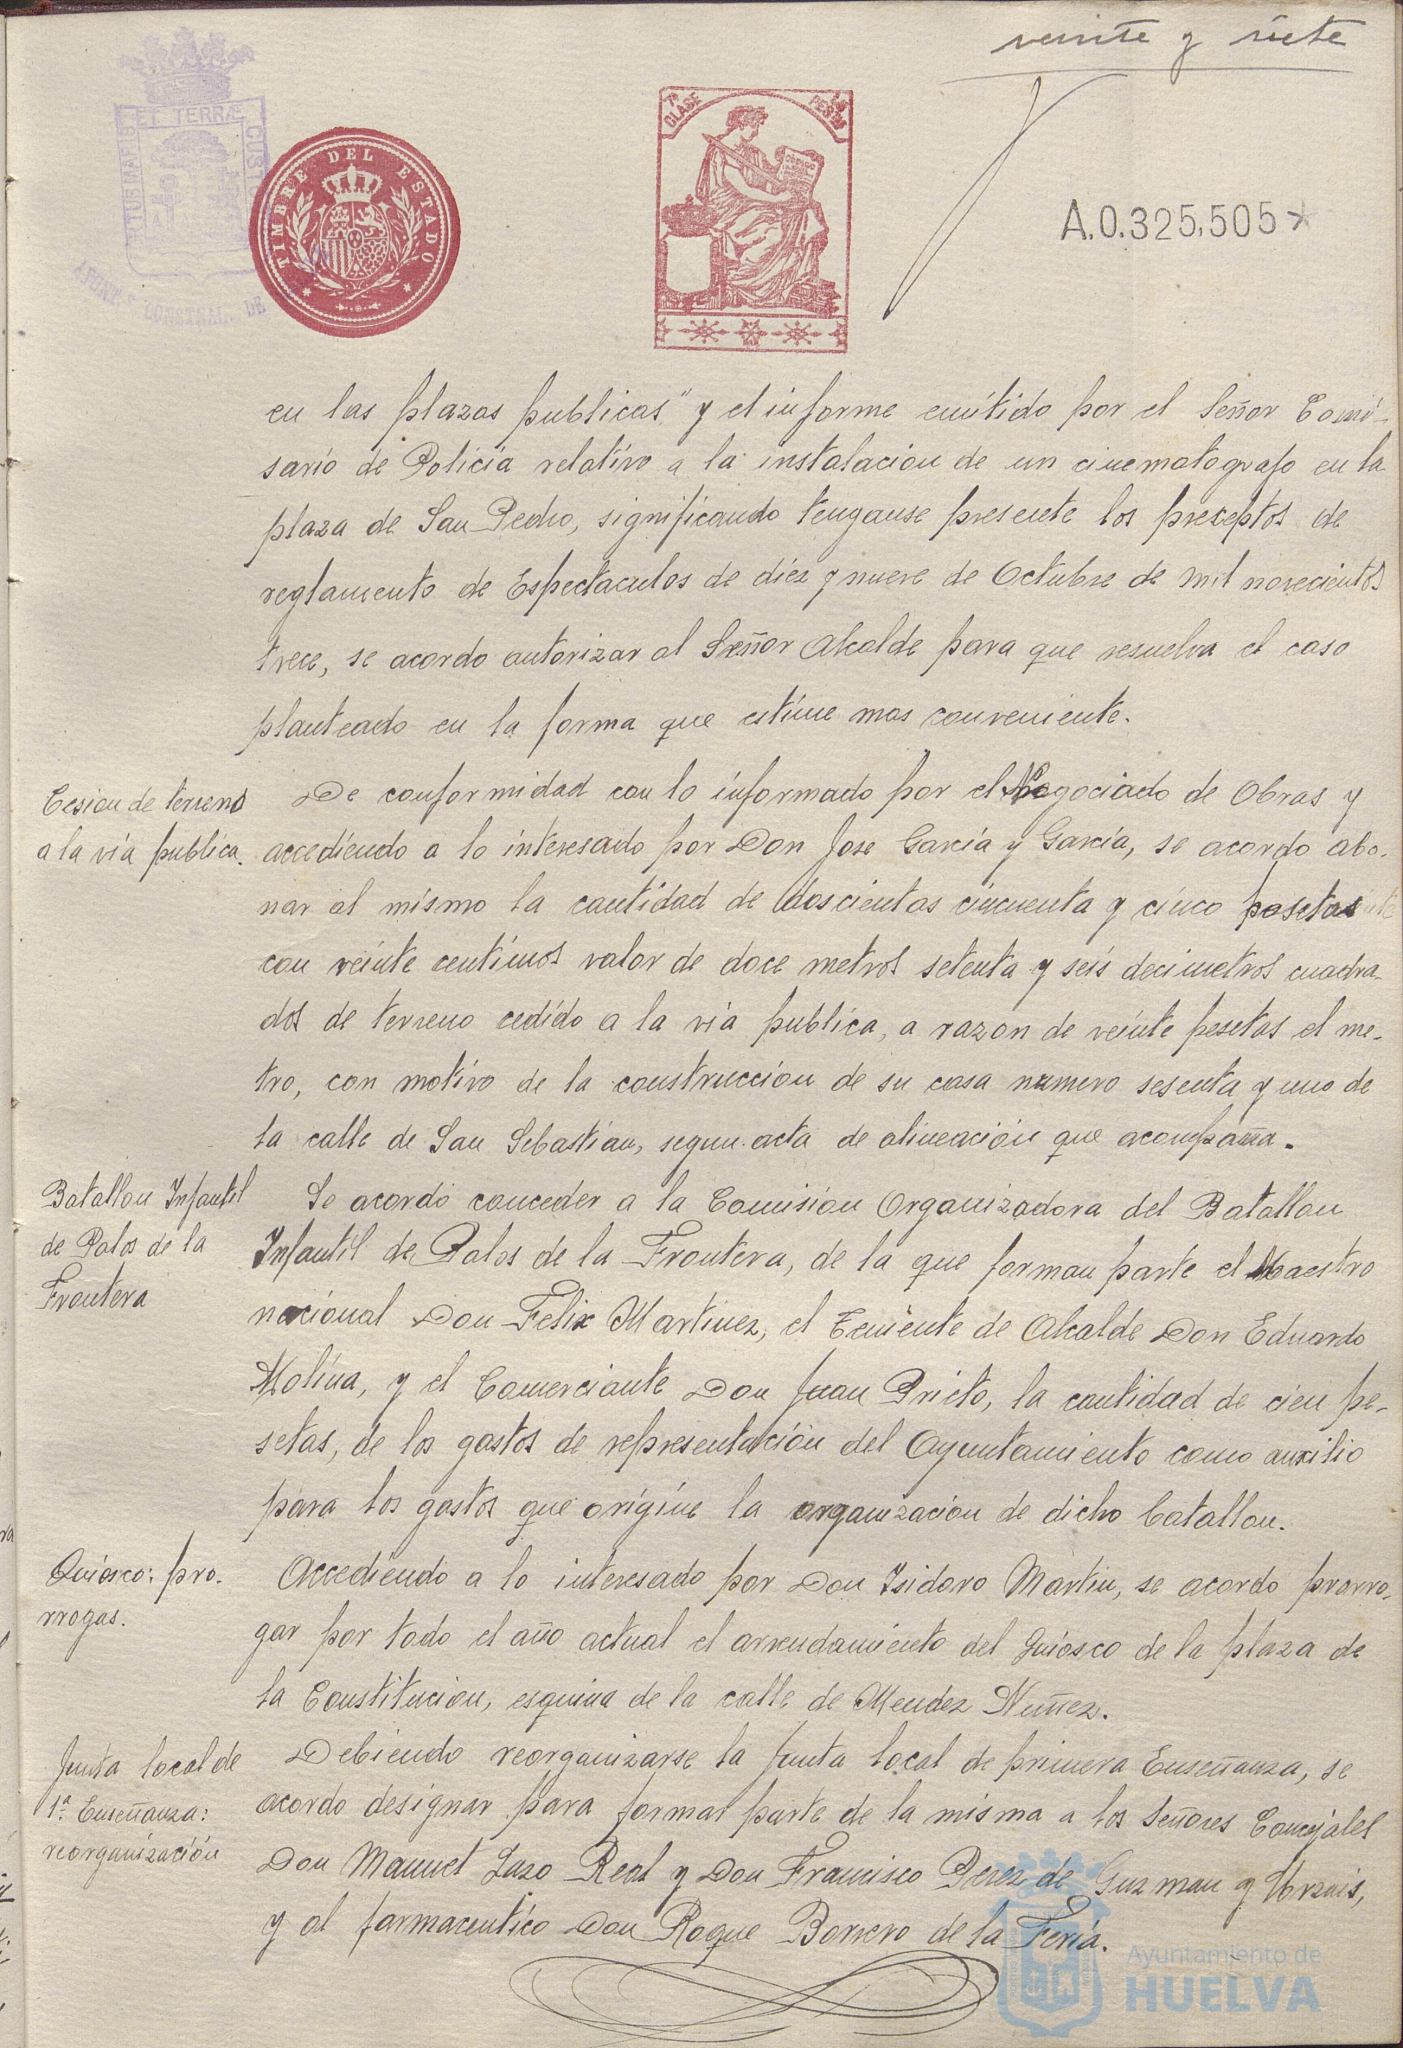 veinte y siete
ET TERRÆ CUSTO
TIMBRE DEL ESTADO
7ª CLASE
PESTAS
CODIGO
A.0.325,505*
en las plazas publicas" y el informe emitido por el Señor Comi-
sario de Policia relativo a la instalacion de un cinematografo en la
plaza de San Pedro, significando tenganse presente los preceptos de
reglamento de Espectaculos de diez y nueve de Octubre de mil novecientos
trece, se acordo autorizar al Señor Alcalde para que resuelva el caso
planteado en la forma que estime mas conveniente.
Cesion de terreno
a la via publica.
De conformidad con lo informado por el Negociado de Obras y
accediendo a lo interesado por Don Jose Garcia y Garcia, se acordo abo-
nar al mismo la cantidad de doscientas cincuenta y cinco pesetas
con veinte centimos valor de doce metros setenta y seis decimetros cuadra-
dos de terreno cedido a la via publica, a razon de veinte pesetas el me-
tro, con motivo de la construccion de su casa numero sesenta y uno de
la calle de San Sebastian, segun acta de alineación que acompaña.
Batallon Infantil
de Palos de la
Frontera
Se acordó conceder a la Comision Organizadora del Batallon
Infantil de Palos de la Frontera, de la que forman parte el Maestro
nacional Don Felix Martinez, el Teniente de Alcalde Don Eduardo
Molina, y el Comerciante Don Juan Prieto, la cantidad de cien pe-
setas, de los gastos de representación del Ayuntamiento como auxilio
para los gastos que origine la organizacion de dicho batallon.
Quiosco: pro-
rrogas.
Accediendo a lo interesado por Don Isidoro Martin, se acordo prorro-
gar por todo el año actual el arrendamiento del quiosco de la plaza de
la Constitucion, esquina de la calle de Mendez Nuñez.
Junta local de
1ª Enseñanza:
reorganización
Debiendo reorganizarse la Junta local de primera Enseñanza, se
acordo designar para formar parte de la misma a los Señores Concejales
Don Manuel Lazo Real y Don Francisco Perez de Guzman y Urzais,
y al farmaceutico Don Roque Borrero de la Feria.
Ayuntamiento de
HUELVA